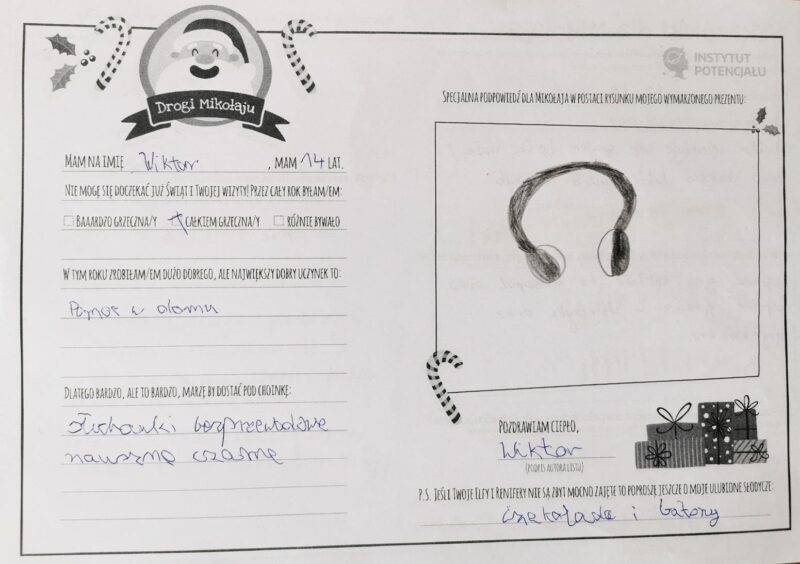 Drogi Mikołaju
Mam na imię Wiktor, mam 14 lat.
Nie mogę się doczekać już Świąt i Twojej wizyty! Przez cały rok byłam/em:
☐ Baaardzo grzeczna/y ☒ całkiem grzeczna/y ☐ różnie bywało
W tym roku zrobiłam/em dużo dobrego, ale największy dobry uczynek to:
Pomoc w domu
Dlatego bardzo, ale to bardzo, marzę by dostać pod choinkę:
słuchawki bezprzewodowe
nauszne czarne
INSTYTUT
POTENCJAŁU
Specjalna podpowiedź dla Mikołaja w postaci rysunku mojego wymarzonego prezentu:
Pozdrawiam ciepło,
Wiktor
(podpis autora listu)
P.S. Jeśli Twoje Elfy i Renifery nie są zbyt mocno zajęte to poproszę jeszcze o moje ulubione słodycze:
czekolada i batony